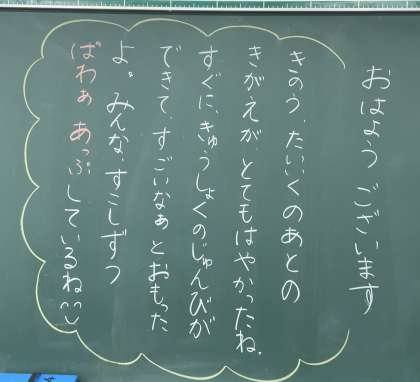 おはよう ございます
きのう、たいいくのあとの
きがえが、とてもはやかったね。
すぐに、きゅうしょくのじゅんびが
できて、すごいなぁとおもった
よ。みんな、すこしずつ
ぱわぁ あっぷしているね